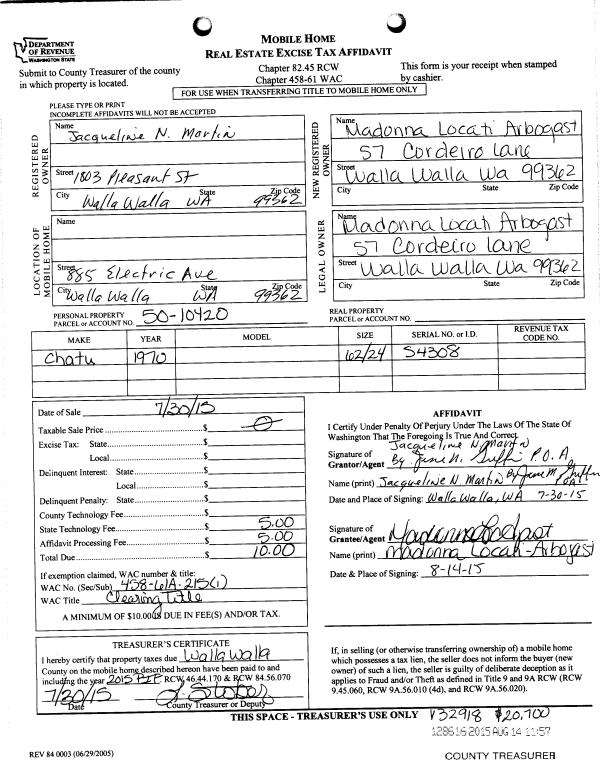 DEPARTMENT
OF REVENUE
WASHINGTON STATE
MOBILE HOME
REAL ESTATE EXCISE TAX AFFIDAVIT
Submit to County Treasurer of the county
in which property is located.
Chapter 82.45 RCW
Chapter 458-61 WAC
This form is your receipt when stamped
by cashier.
FOR USE WHEN TRANSFERRING TITLE TO MOBILE HOME ONLY
PLEASE TYPE OR PRINT
INCOMPLETE AFFIDAVITS WILL NOT BE ACCEPTED
REGISTERED
OWNER
Name
Jacqueline N. Martin
Street 1803 Pleasant St
City State Zip Code
Walla Walla WA 99362
NEW REGISTERED
OWNER
Name
Madonna Locati Arbogast
57 Cordeiro Lane
Street Walla Walla Wa 99362
City State Zip Code
LOCATION OF
MOBILE HOME
Name
Street 885 Electric Ave
City State Zip Code
Walla Walla WA 99362
LEGAL OWNER
Name
Madonna Locati Arbogast
57 Cordeiro Lane
Street Walla Walla Wa 99362
City State Zip Code
PERSONAL PROPERTY
PARCEL or ACCOUNT NO. 50-10420
REAL PROPERTY
PARCEL or ACCOUNT NO.
MAKE YEAR MODEL SIZE SERIAL NO. or I.D. REVENUE TAX
CODE NO.
Chatu 1970 62/24 S4308
Date of Sale 7/30/15
Taxable Sale Price $ 0
Excise Tax: State $
Local $
Delinquent Interest: State $
Local $
Delinquent Penalty: State $
County Technology Fee $
State Technology Fee $ 5.00
Affidavit Processing Fee $ 5.00
Total Due $ 10.00
If exemption claimed, WAC number & title:
WAC No. (Sec/Sub) 458-61A-215(1)
WAC Title Clearing Title
A MINIMUM OF $10.00 IS DUE IN FEE(S) AND/OR TAX.
AFFIDAVIT
I Certify Under Penalty Of Perjury Under The Laws Of The State Of
Washington That The Foregoing Is True And Correct.
Jacqueline N Martin
Signature of
Grantor/Agent By Griffin P.O.A.
Name (print) Jacqueline N. Martin By M Griffin
POA
Date and Place of Signing: Walla Walla, WA 7-30-15
Signature of
Grantee/Agent
Name (print) Madonna Locati-Arbogast
Date & Place of Signing: 8-14-15
TREASURER'S CERTIFICATE
I hereby certify that property taxes due Walla Walla
County on the mobile home described hereon have been paid to and
including the year 2015 PIF RCW 46.44.170 & RCW 84.56.070
7/30/15
Date County Treasurer or Deputy
If, in selling (or otherwise transferring ownership of) a mobile home
which possesses a tax lien, the seller does not inform the buyer (new
owner) of such a lien, the seller is guilty of deliberate deception as it
applies to Fraud and/or Theft as defined in Title 9 and 9A RCW (RCW
9.45.060, RCW 9A.56.010 (4d), and RCW 9A.56.020).
THIS SPACE - TREASURER'S USE ONLY V32918 $20,700
128616 2015 AUG 14 11:57
REV 84 0003 (06/29/2005)
COUNTY TREASURER